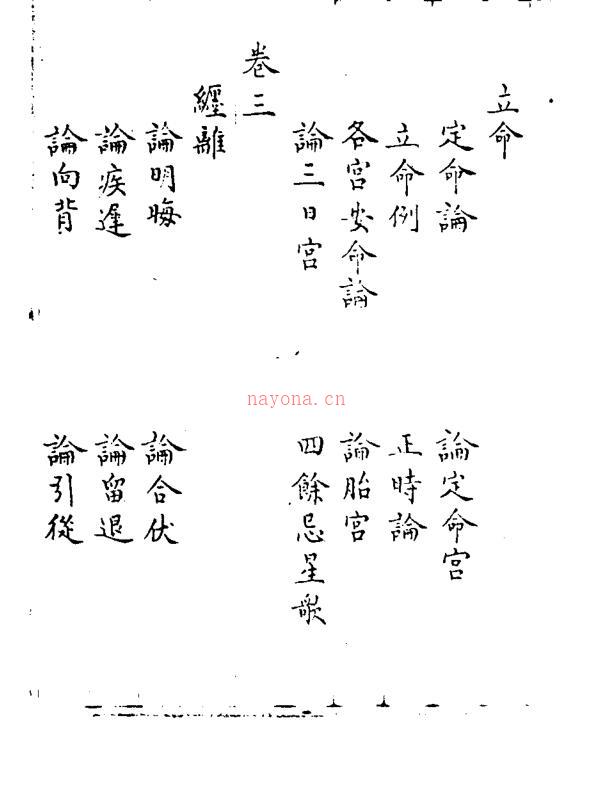 立命
定命論 論定命宮
立命例 正時論
各宮安命論 論胎宮
論三日宮 四餘忌星歌
卷三
纏離
論明晦 論合伏
論疾遲 論留退
論向背 論引從
nayona.cn